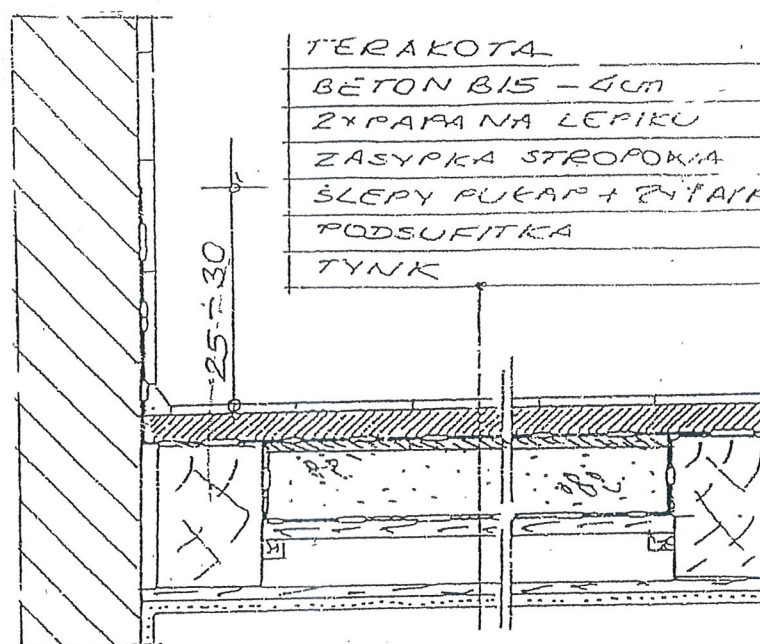 TERAKOTA
BETON B15 - 4cm
2xPAPA NA LEPIKU
ZASYPKA STROPOWA
ŚLEPY PUŁAP + 2x PAPA
PODSUFITKA
TYNK
25-30